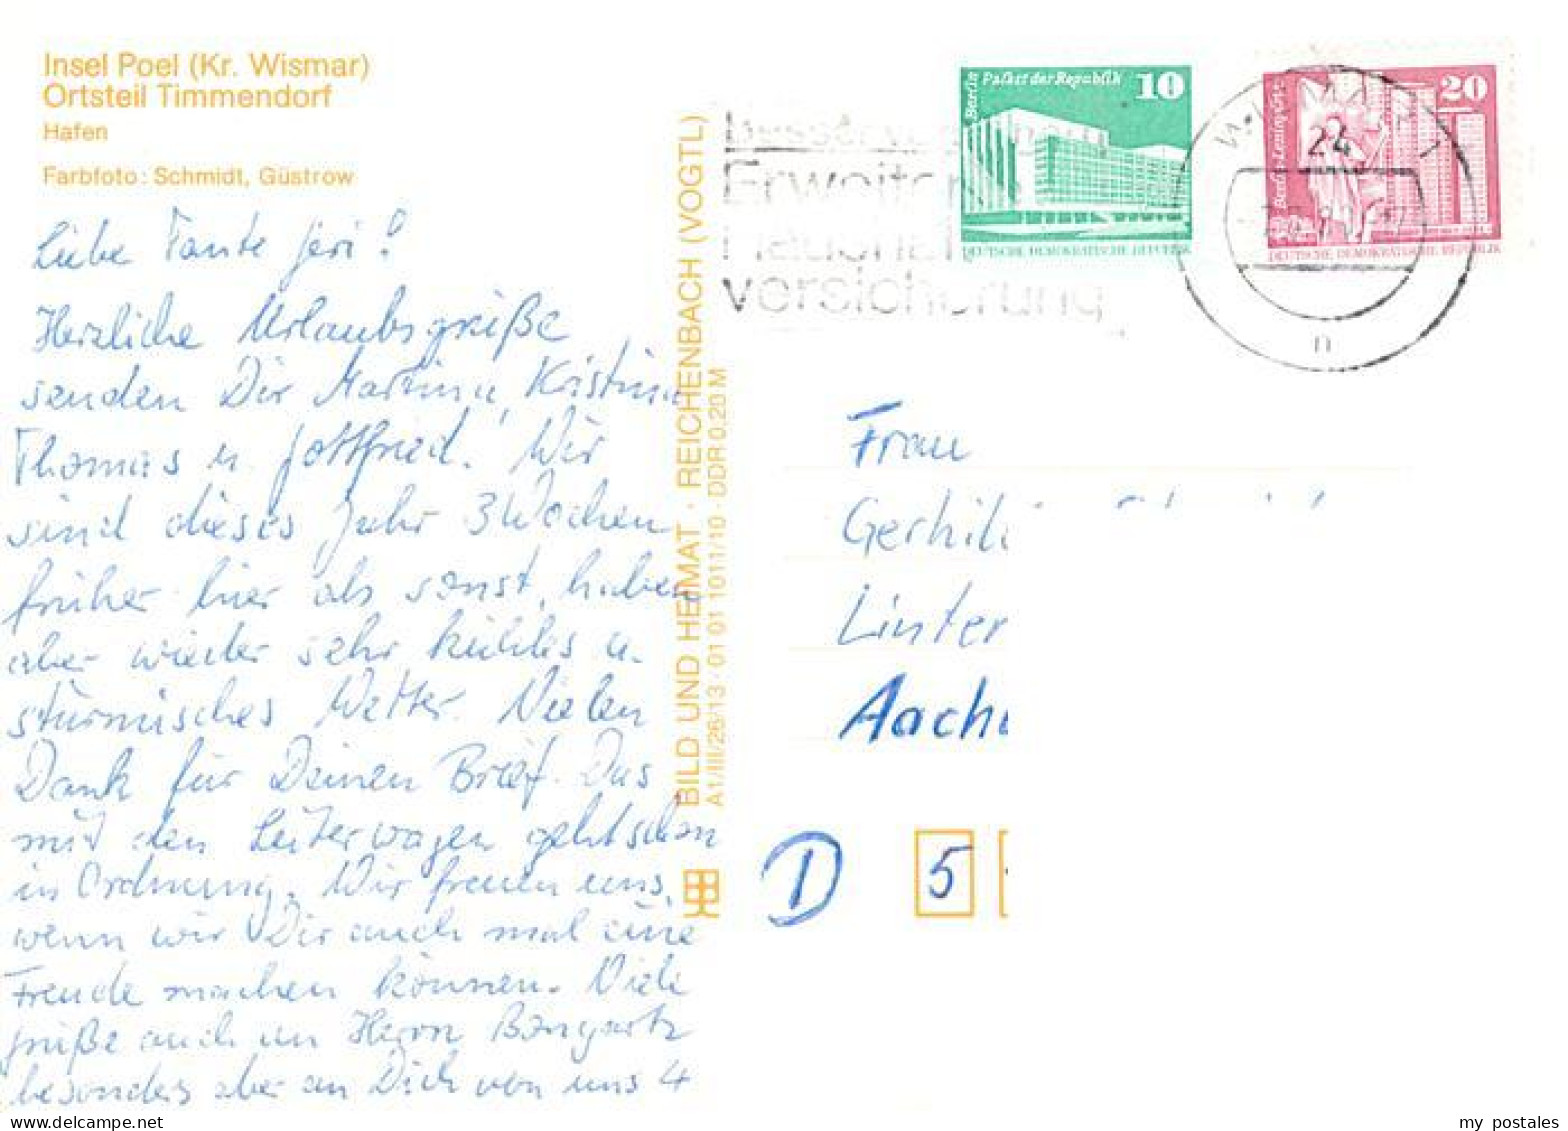 Insel Poel (Kr. Wismar)
Ortsteil Timmendorf
Hafen
Farbfoto: Schmidt, Güstrow
Liebe Tante Geri!
Herzliche Urlaubsgrüße
senden Dir Martina, Kristina
Thomas u. Gottfried. Wir
sind dieses Jahr 3 Wochen
früher hier als sonst, haben
aber wieder sehr kühles u.
stürmisches Wetter. Vielen
Dank für Deinen Brief. Das
mit den Leiterwagen geht schon
in Ordnung. Wir freuen uns,
wenn wir Dir auch mal eine
Freude machen können. Viele
Grüße auch an Herrn Bongartz
besonders aber an Dich von uns 4
BILD UND HEIMAT · REICHENBACH (VOGTL)
A1/III/26/13 · 01 01 1011/10 · DDR 0,20 M
Erweiterte
Haushalt
versicherung
Berlin Palast der Republik 10
DEUTSCHE DEMOKRATISCHE REPUBLIK
24
n
Berlin-Leninplatz 20
DEUTSCHE DEMOKRATISCHE REPUBLIK
Frau
Gerhil
Linter
Aach
D 5
my postales